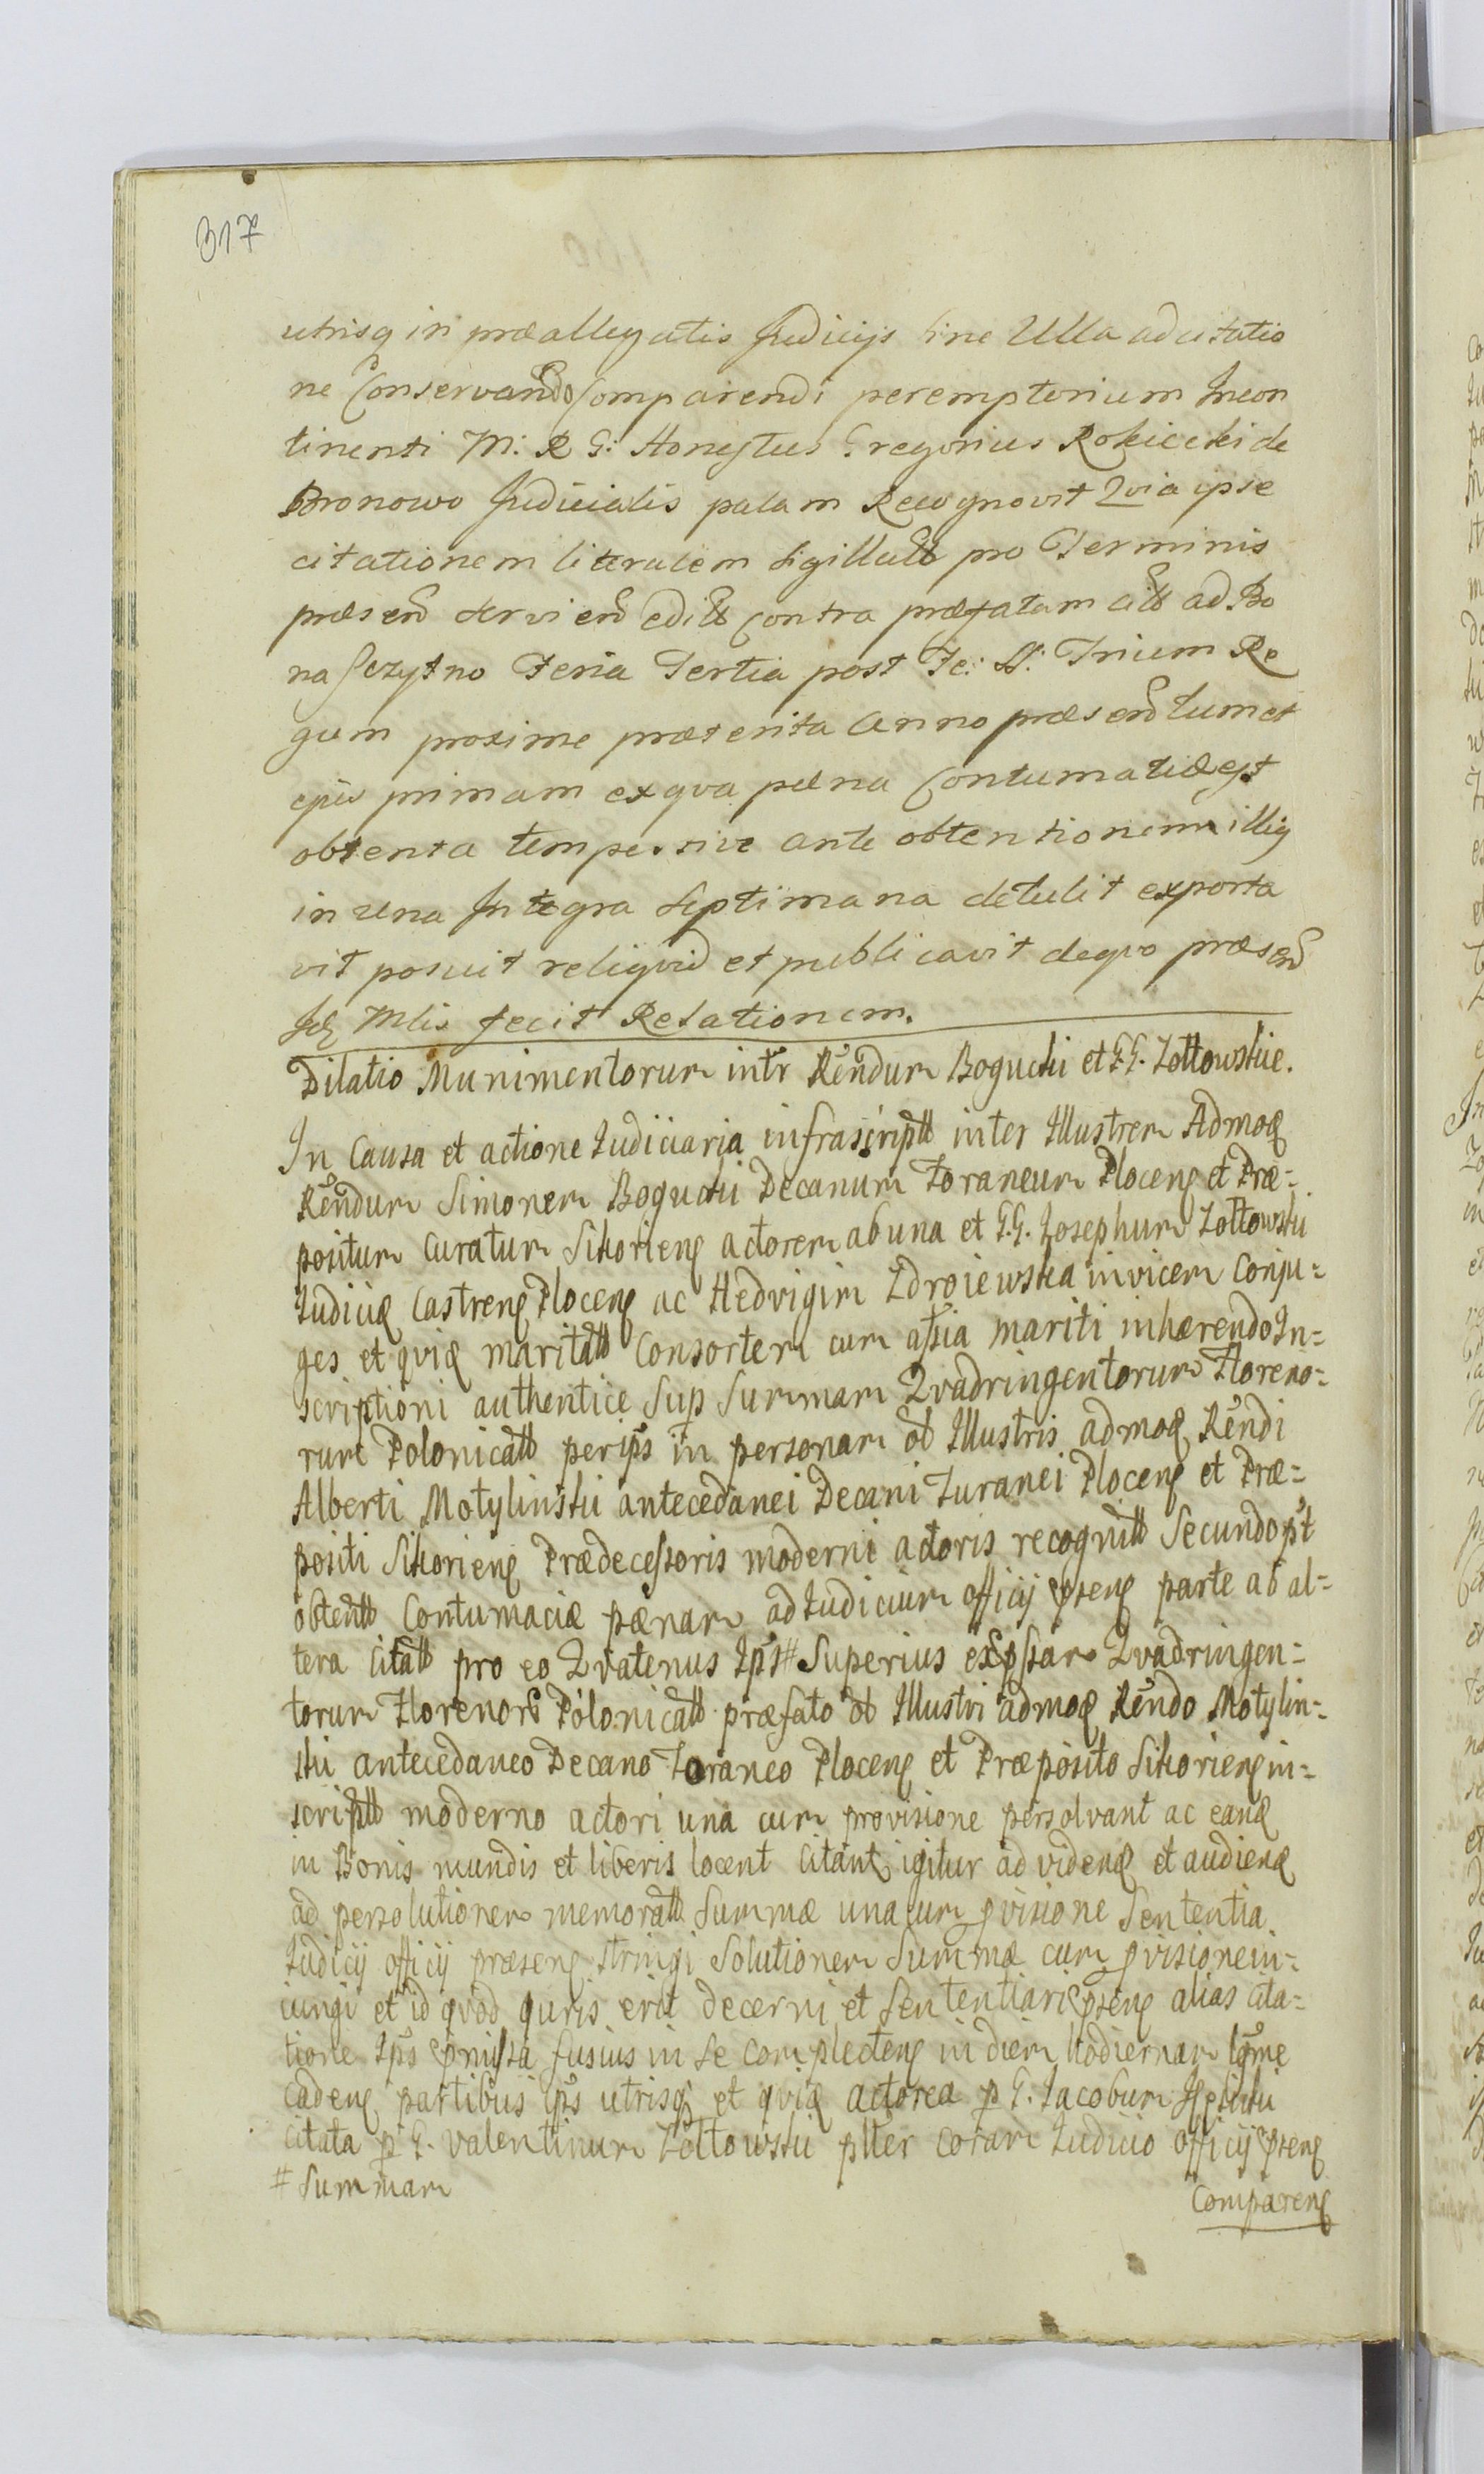 317
utrisq in præallegatis Judicijs sine Ulla adcitatio
ne Conservando Comparendi peremptorium Incon
tinenti M: R G: Honestus Gregorius Rokicki de
Bronowo Judicialis palam Recognovit Qvia ipse
citationem literalem sigillatt pro Terminis
præsen servien editt contra præfatam citt ad Bo
na Sczytno Feria Tertia post Fe: S: Trium Re
gum proxime præterita Anno præsen tum et
ejus primam ex qva pæna Contumatiæ est
obtenta tempestive ante obtentionem illiq
in una Integra septimana detulit exporta
vit posuit reliqvid et publicavit deqvo præsen
Mlis fecit Relationem.
Dilatio Munimentorum intr Rendum Boguchi et GG. Zottowskie.
In Causa et actione Iudiciaria infrascriptt inter Illustrem Admoq
Rendum Simonem Boguchi Decanum Foraneum Plocenq et Præ=
positum Curatum Sikorienq actorem ab una et G.G. Iosephum Zottowski
Iudiciq Castrenq Plocenq ac Hedvigim Zdroiewska invicem Conju=
ges et qviq maritatt Consortem cum assia mariti inhærendo In=
scriptioni authentice Sup Summam Qvadringentorum Floreno=
rum Polonicatt per ips in personam ol Illustris admoq Rendi
Alberti Motylinski antecedanei Decani Furanei Plocenq et Præ=
positi Sikorienq Prædecessoris moderni actoris recognitt Secundo pt
obtentt Contumaciæ pænam ad Iudicium officij psenq parte ab al=
tera Citatt pro eo Qvatenus Ips # Superius expssam Qvadringen=
torum Florenor Polonicatt præfato ol Illustri admoq Rendo Motylin=
ski antecedaneo Decano Foraneo Plocenq et Præposito Sikorienq in=
scriptt moderno actori una cum provisione persolvant ac eanq
in Bonis mundis et liberis locent Citant igitur ad videnq et audienq
ad persolutionem memoratt Summæ una cum pvisione Sententia
Iudicij officij præsenq stringi Solutionem Summæ cum pvisione in=
iungi et id qvod quris erit decerni et Sententiari psenq alias Cita=
tione Ips pmissa fusius in se complectenq in diem hodiernam
cadenq partibus ips utrisq et qviq actorea p G. Iacobum
Citata p G. Valentinum Zottowski plter coram Iudicio officij psenq
# Summam
Comparenq